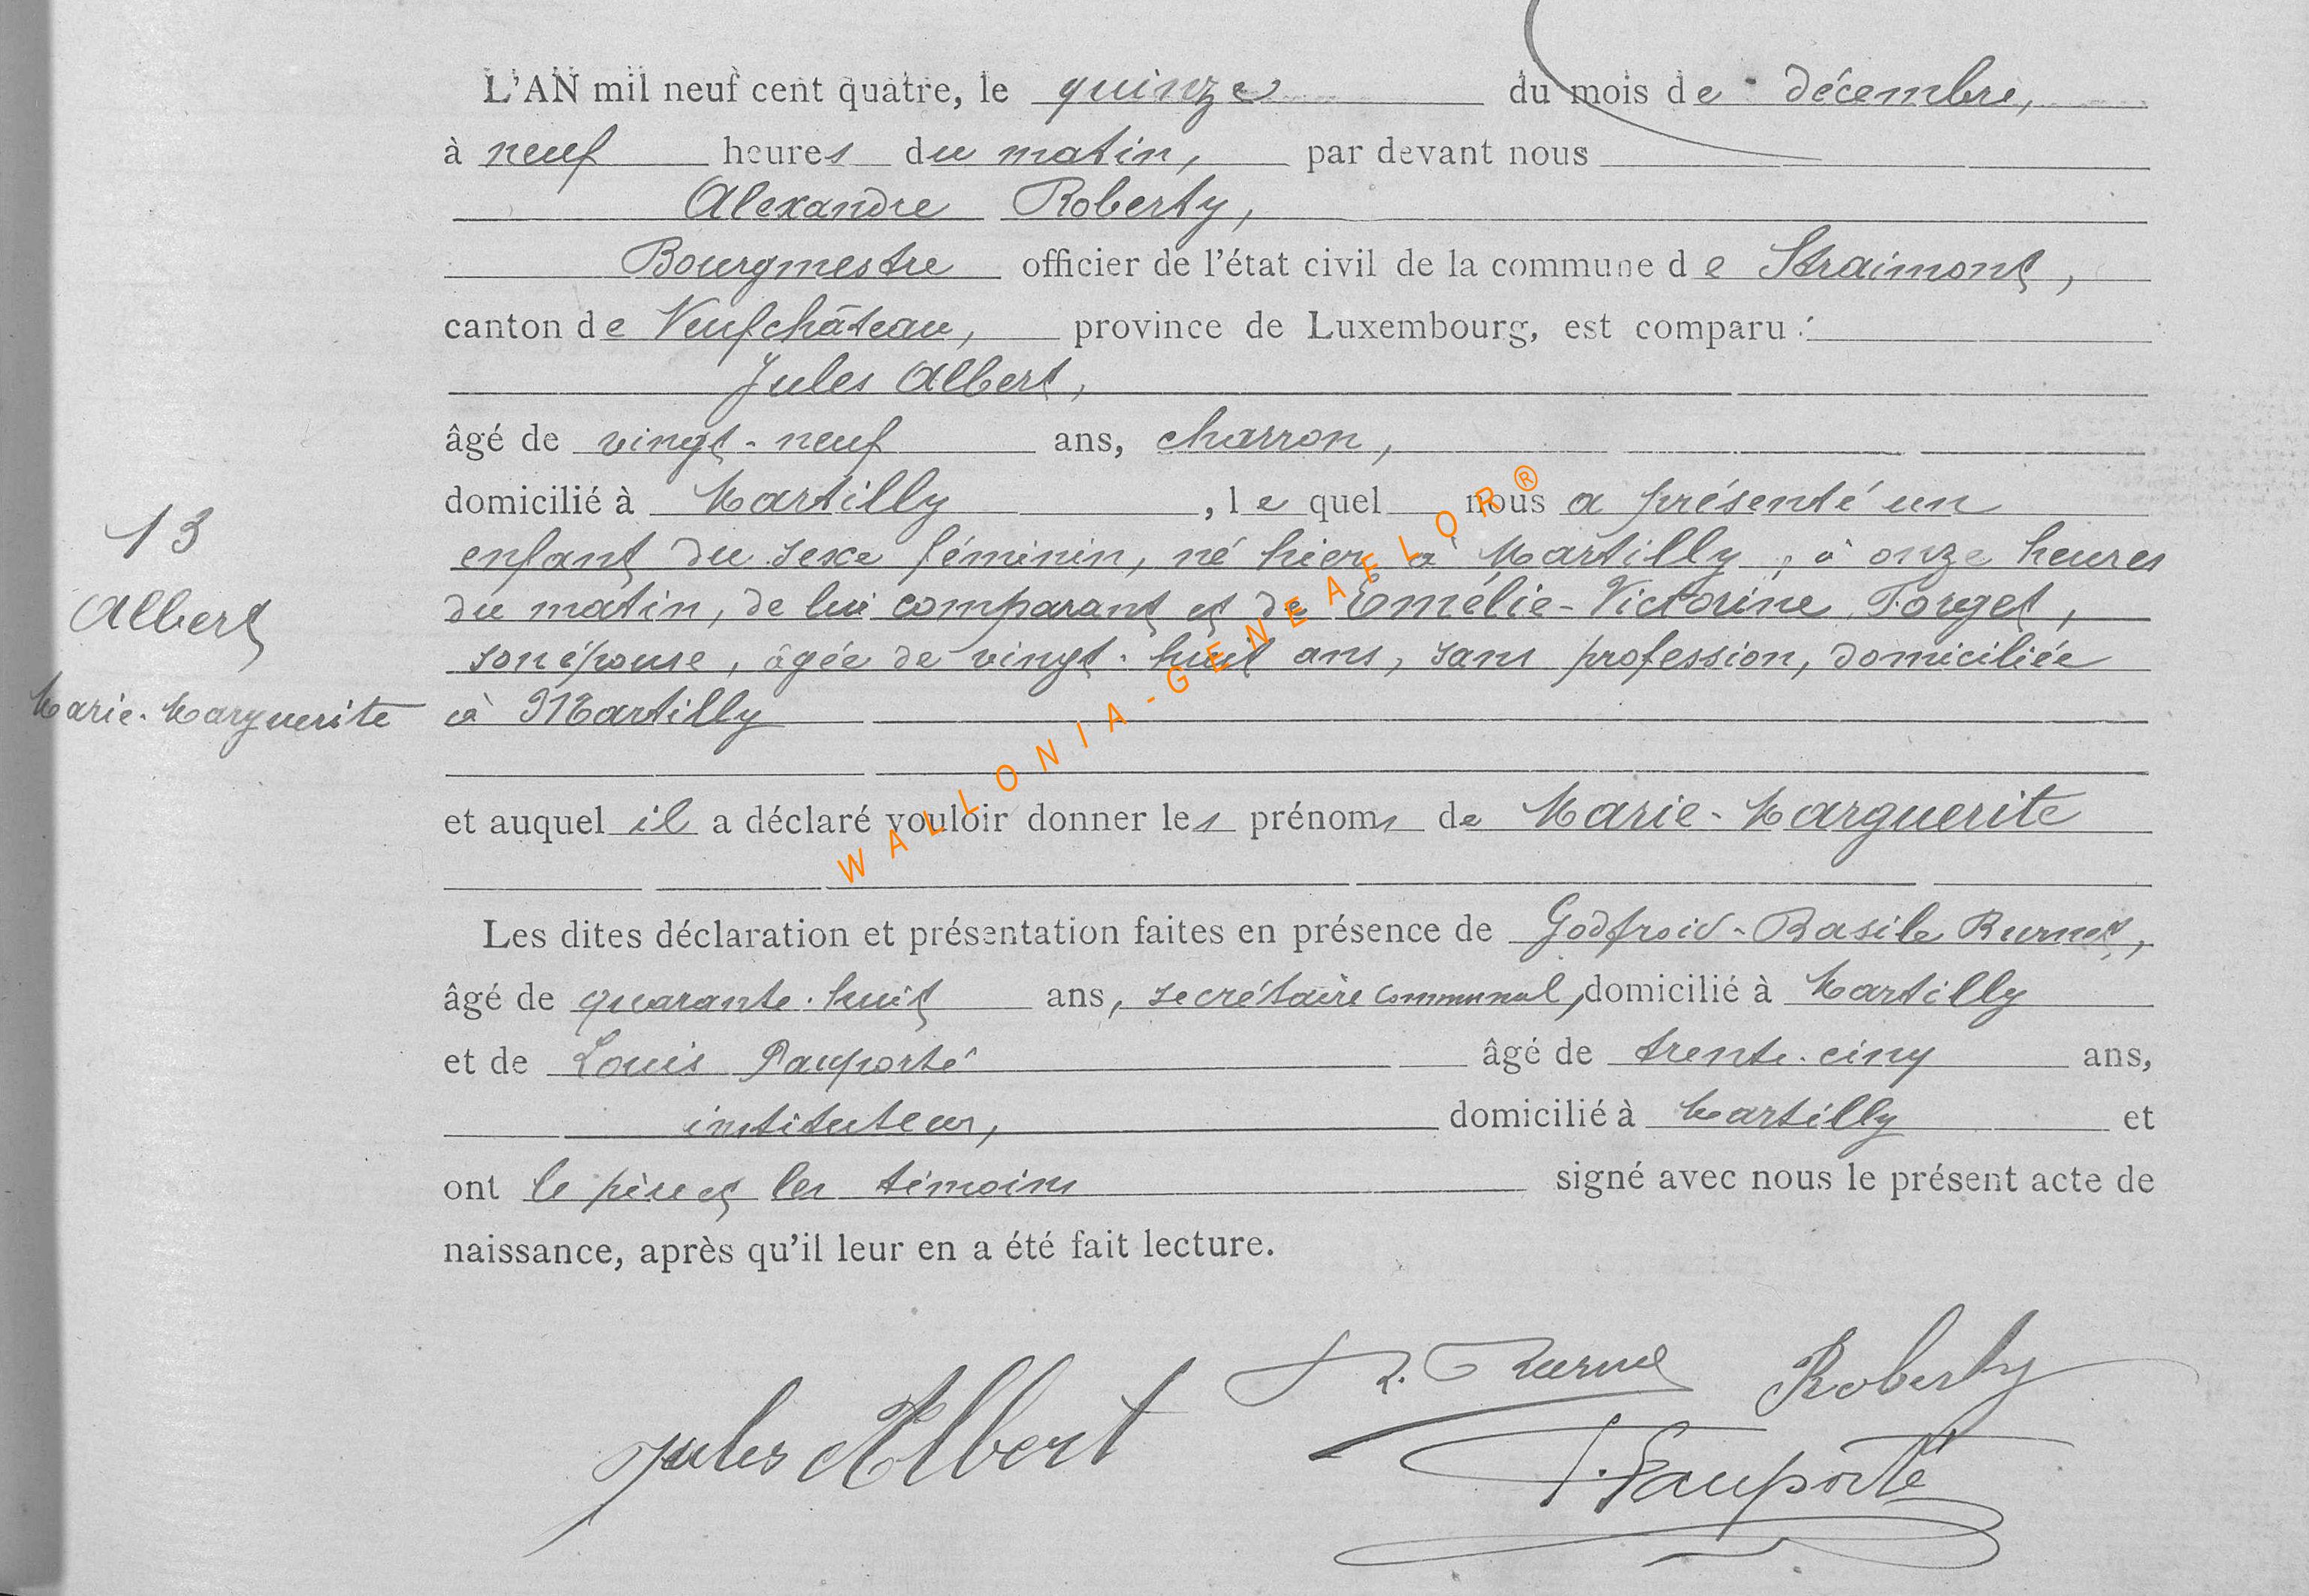 L'AN mil neuf cent quatre, le quinze du mois de décembre,
à neuf heures du matin, par devant nous
Alexandre Roberty,
Bourgmestre officier de l'état civil de la commune de Straimont,
canton de Neufchâteau, province de Luxembourg, est comparu :
Jules Albert,
âgé de vingt-neuf ans, charron,
domicilié à Martilly, lequel nous a présenté un
enfant du sexe féminin, né hier à Martilly, à onze heures
du matin, de lui comparant et de Emélie-Victorine Forget,
son épouse, âgée de vingt-huit ans, sans profession, domiciliée
à Martilly
13
Albert
Marie-Marguerite
et auquel il a déclaré vouloir donner les prénoms de Marie-Marguerite
Les dites déclaration et présentation faites en présence de Godfroid-Basile Burnet,
âgé de quarante-huit ans, secrétaire communal, domicilié à Martilly
et de Louis Pauporté âgé de trente-cinq ans,
instituteur, domicilié à Martilly et
ont le père et les témoins signé avec nous le présent acte de
naissance, après qu'il leur en a été fait lecture.
Roberty
Jules Albert
Pauporté
WALLONIA-GENEAFLOR®